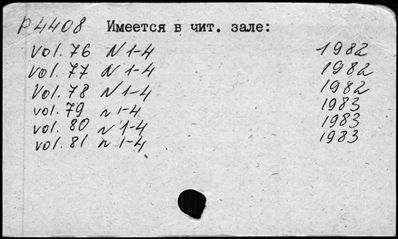 P4408 Имеется в чит. зале:
vol. 76 N 1-4 1982
vol. 77 N 1-4 1982
Vol. 78 N 1-4 1982
vol. 79 n 1-4 1983
vol. 80 n 1-4 1983
vol. 81 n 1-4 1983